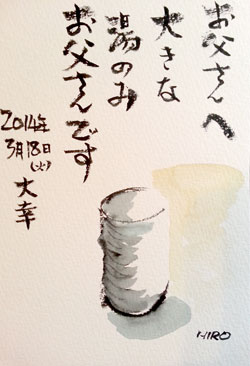 お父さんへ
大きな
湯のみ
お父さんです
2014年
3月18日
(火)
大幸
HIRO